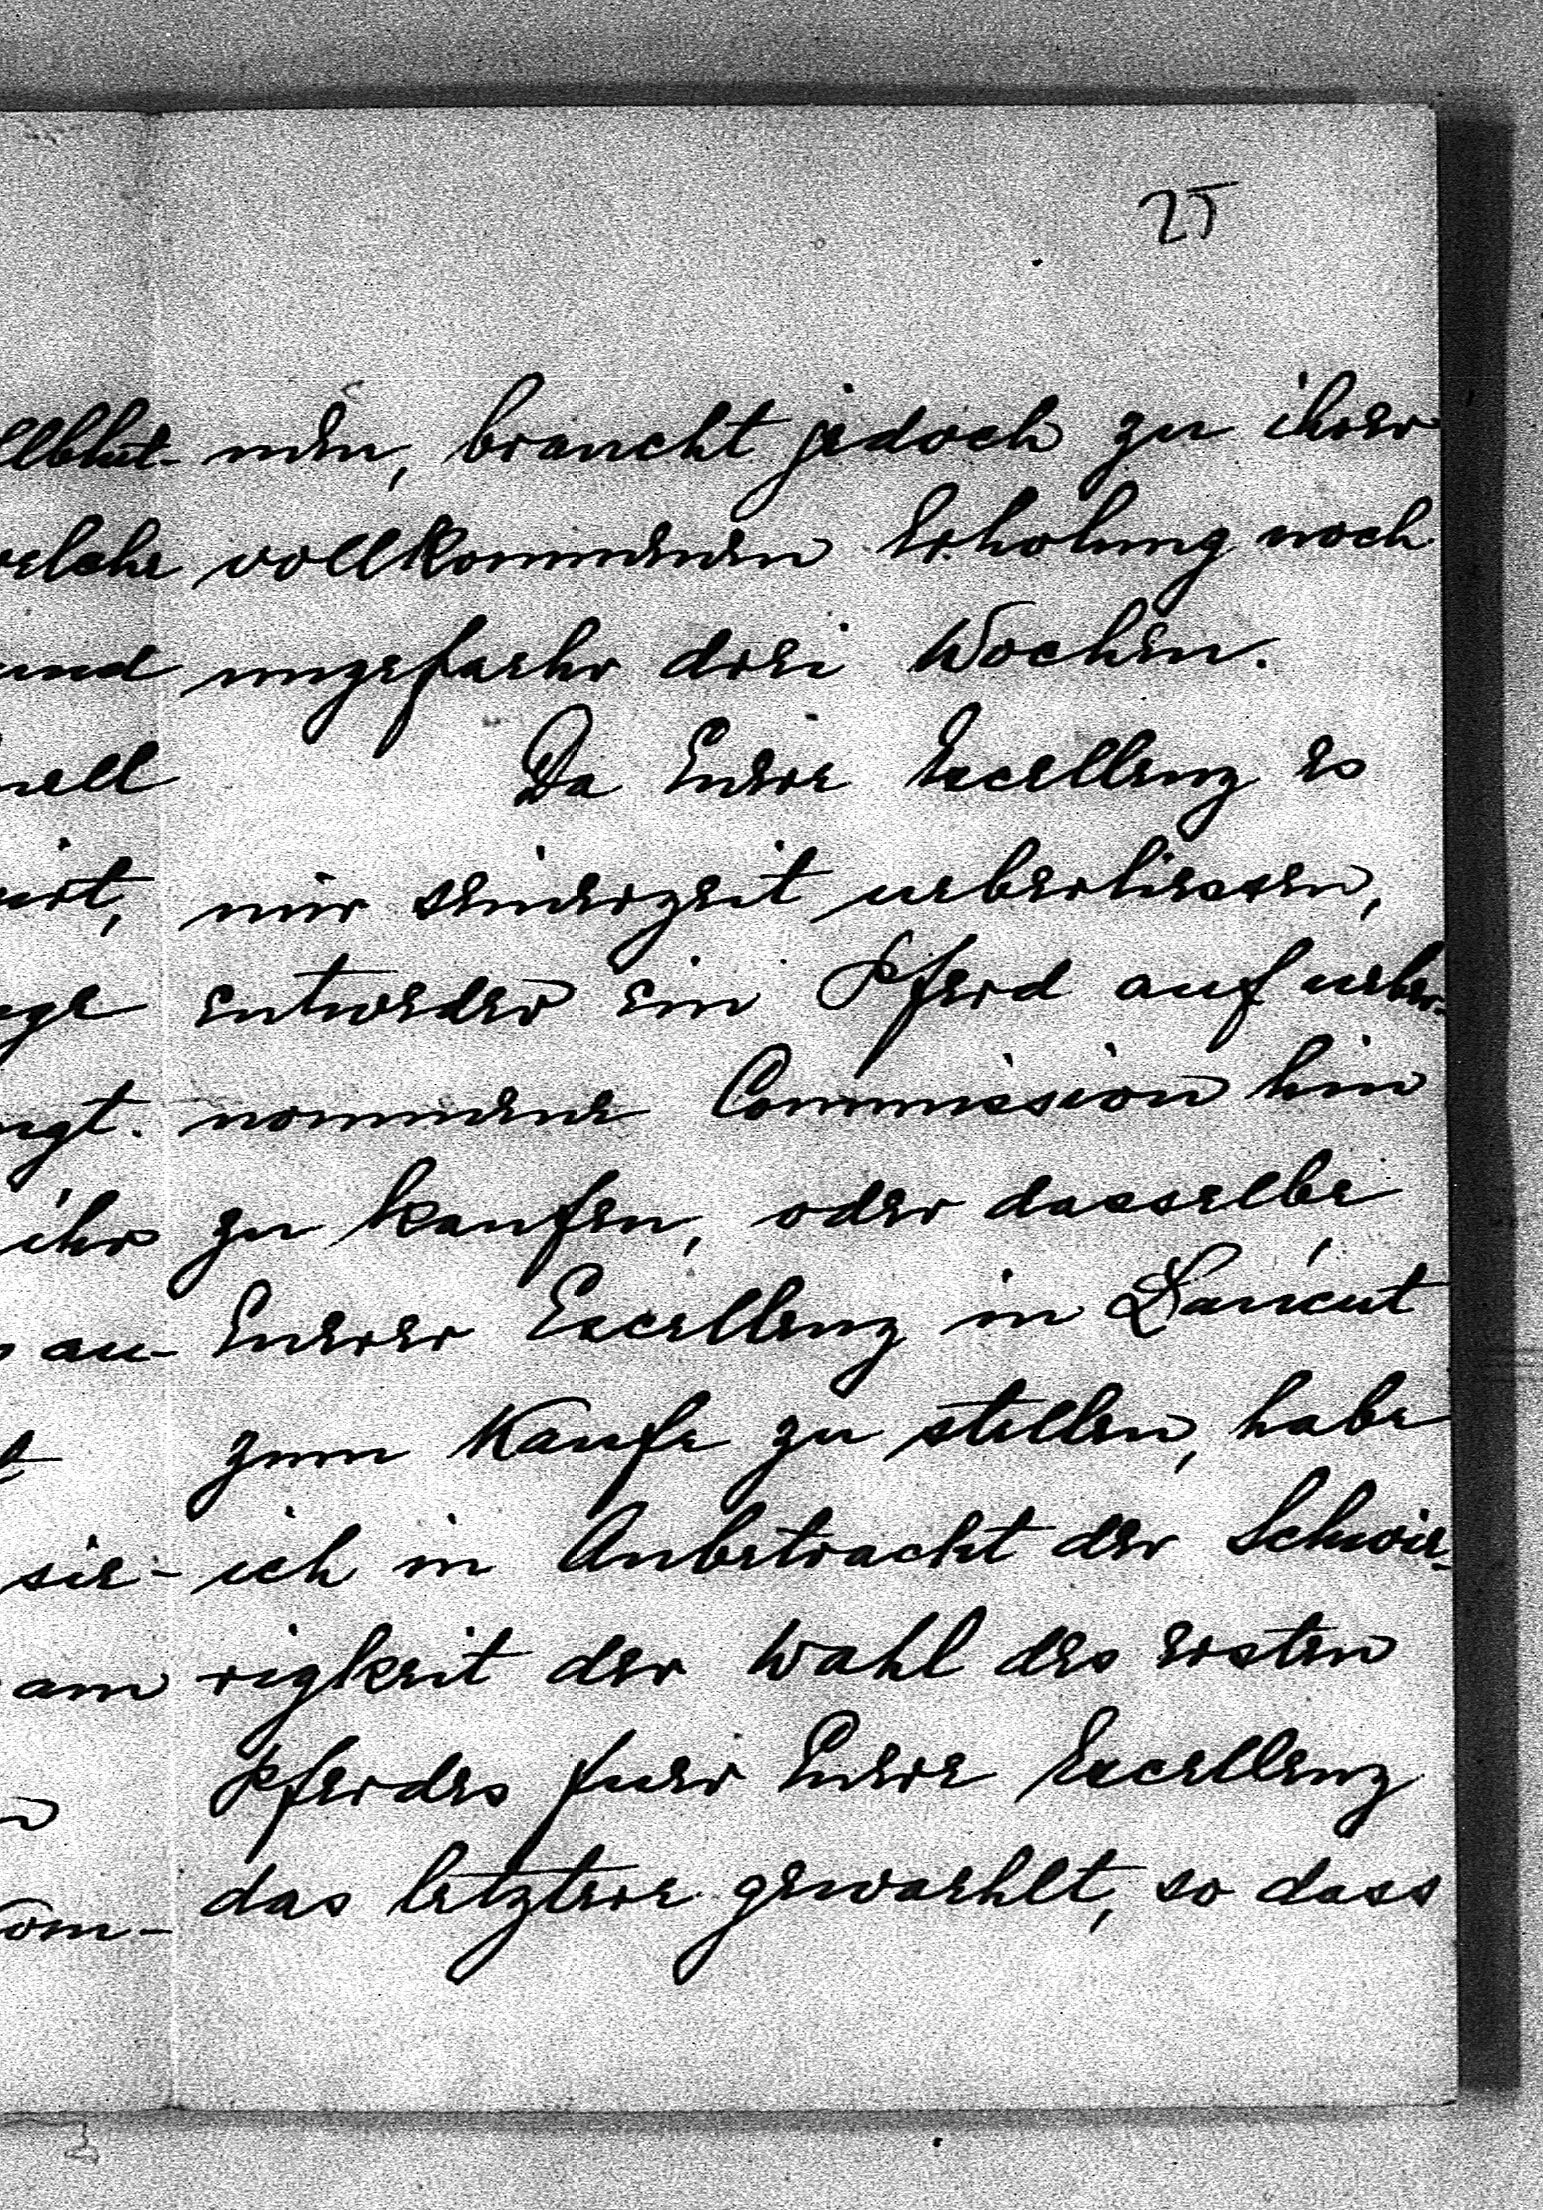 25
men, braucht jedoch zu ihrer
vollkommenen Erholung noch
ungefaehr drei Wochen.
Da Euere Excellenz es
mir seinerzeit ueberliessen,
entweder ein Pferd auf ueber-
nommene Commission hin
zu kaufen, oder dasselbe
Euerer Excellenz in Łańcut
zum Kaufe zu stellen, habe
ich in Anbetracht der Schwie-
rigkeit der Wahl des ersten
Pferdes fuer Euere Excellenz
das letztere gewaehlt, so dass